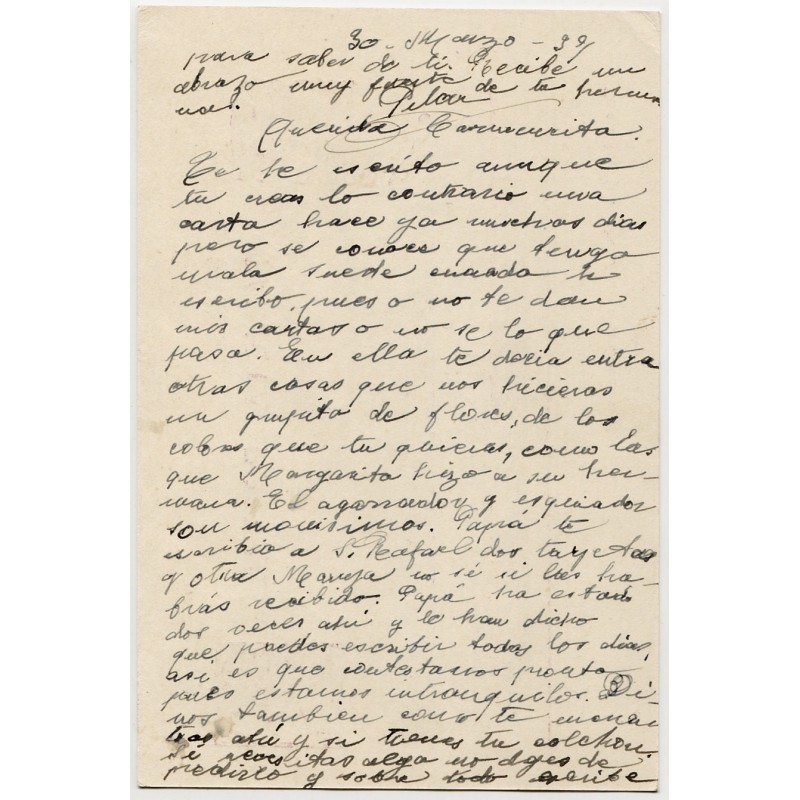 30 - Marzo - 39
para saber de ti. Recibe un
abrazo muy fuerte de tu herma
na.
Pilar
Querida Carmencita.
Te he escrito aunque
tu creas lo contrario una
carta hace ya muchos dias
pero se conoce que tengo
mala suerte cuando te
escribo, pues o no te dan
mis cartas o no se lo que
pasa. En ella te decia entre
otras cosas que nos hicieras
un grupito de flores, de los
colores que tu quieras, como las
que Margarita hizo a su her-
mana. El agarrador y esquiador
son monisimos. Papá te
escribio a S. Rafael dos tarjetas
y otra Maruja no sé si las ha-
brás recibido. Papá ha estado
dos veces ahí y le han dicho
que puedes escribir todos los dias,
asi es que contestanos pronto
pues estamos intranquilos. Di-
nos tambien como te encuen
tras ahí y si tienes tu colchon.
Si necesitas algo no dejes de
pedirlo y sobre todo escribe